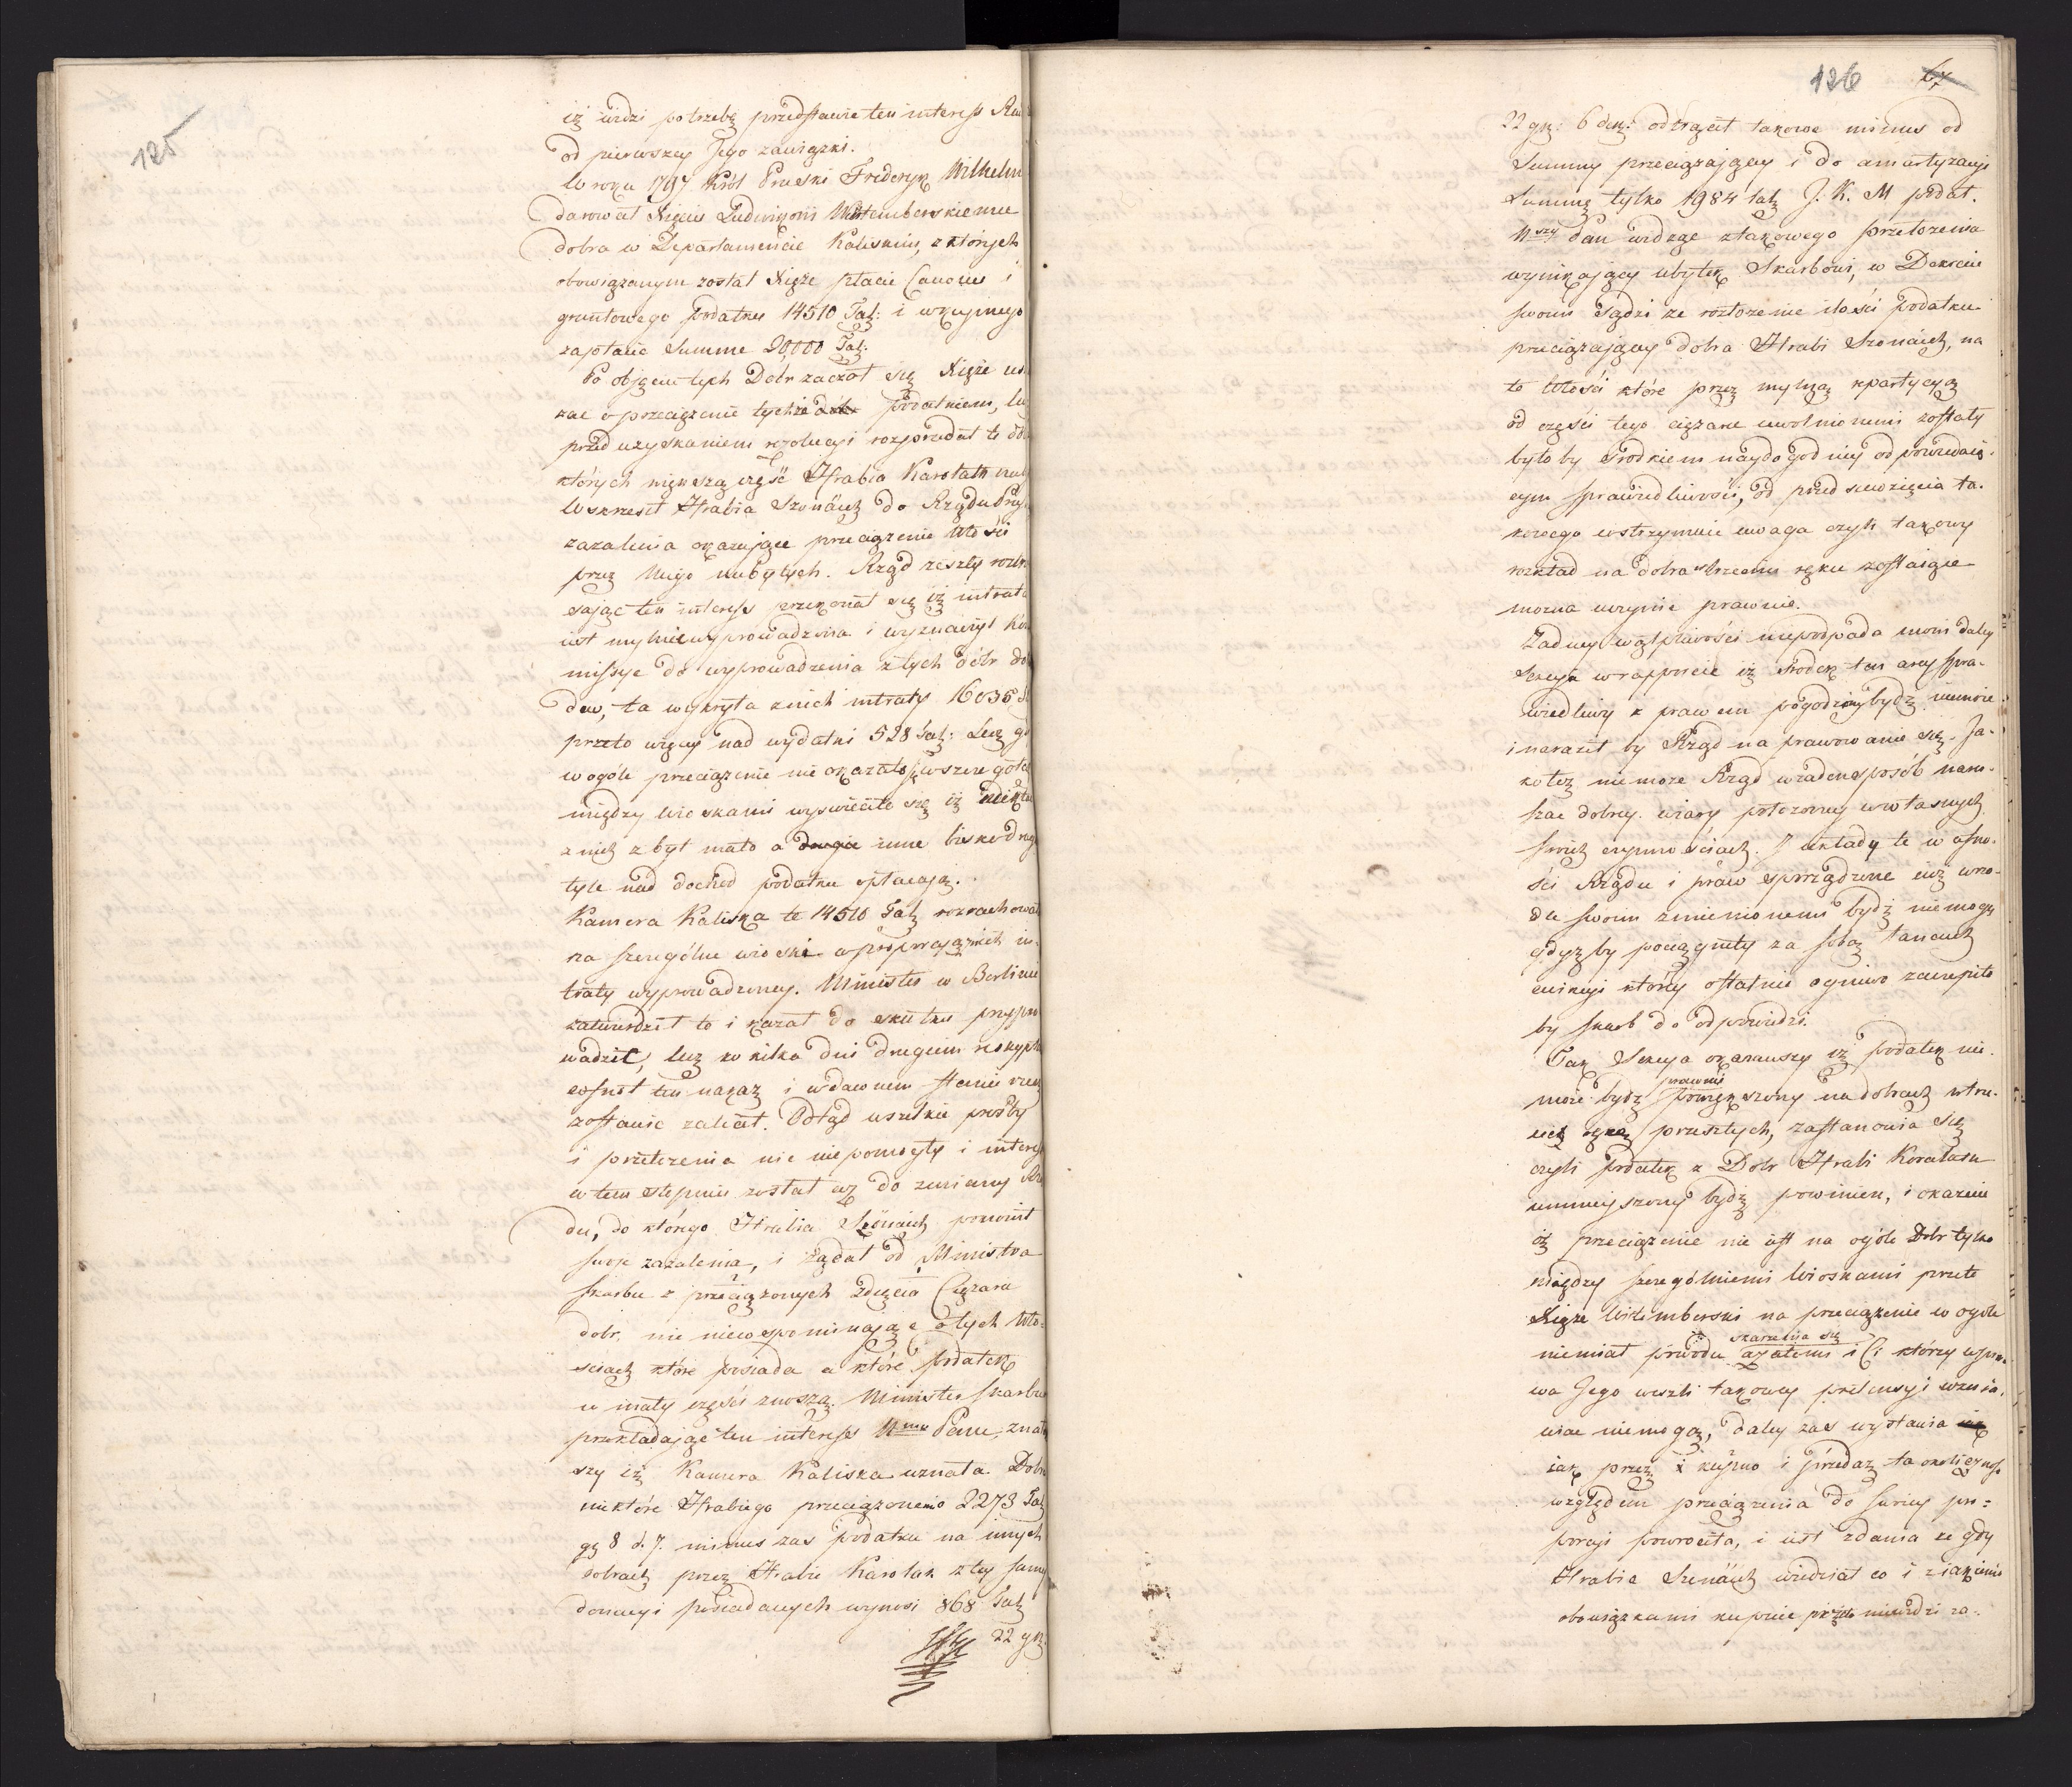 125
iż widzi potrzebę przedstawić ten interess
od pierwszey Jego zawiązki.
W roku 1797 Król Pruski Frideryk Wilhelm
darował Xięciu Ludwikowi Wirtemberskiemu
dobra w Departamencie Kaliskim, z których
obowiązanym został Xiąże płacić Canonu i
gruntowego podatku 14510 Tal: i wkupnego
zapłacić Summę 20,000 Tal:
Po objęciu tych Dobr zaczął się Xiąże
o przeciążenie tychże podatkiem,
przed uzyskaniem rezolucyi rozprzedał te
których większą część Hrabia Karolath
Wskrzesił Hrabia Szönäich do Rządu
zażalenia okazujące przeciążenie Włości
przez Niego nabytych. Rząd zeszły
sając ten interess przekonał się iż intrata
iest mylnie wyprowadzona i wyznaczył
missye do wyprowadzenia z tych dóbr
dów, ta wykryła z nich intraty 16035
przeto więcey nad wydatki 528 Tal: Lecz
w ogóle przeciążenie nie okazało się w szczególe
między wioskami wyświeciło się iż niektóre
z nich zbyt mało a inne blisko drugie
tyle nad dochod podatku opłacają.
Kamera Kaliska te 14510 Tal rozrachowała
na szczególne wioski w proporcyą z nich in-
traty wyprowadzoney. Minister w Berlinie
zatwierdził to i kazał do skutku przypro
wadzić, lecz w kilka dni drugim reskryptem
cofnął ten nakaz i w dawnem stanie rzecz
zostawić zalecił. Odtąd wszelkie prośby
i przełożenia nic nie pomogły i interess
w tem stopniu został aż do zmiany Rzą
du, do którego Hrabia Szönaich ponowił
swoje zażalenia, i żądał od Ministra
Skarbu z przeciążonych zdięcia Ciężaru
dobr, nic nie wspominając o tych Wło-
sciach które posiada a które podatek
w małey części znoszą. Minister Skarbu
przekładając ten interess Nmu Panu, znala
szy iż Kamera Kaliska uznała Dobra
niektóre Hrabiego przeciążonemi 2273 Tal
gg 8 d. 7. minus zas podatku na innych
dobrach przez Hrabie Karolat z tey samey
donacyi posiadanych wynosi 868 Tal
22 gg
126 67
22 gg: 6 den: odtrącił takowe minus od
Summy przeciążającey i do amortyzacyi
Summę tylko 1984 tal J. K. M podał.
Nszy Pan widząc z takowego przełożenia
wynikający ubytek Skarbowi, w Dekrecie
swoim sądzi że rozłożenie ilości podatku
przeciążającey dobra Hrabi Szonaich, na
te Włości które przez mylną repartycyą
od części tego ciężaru uwolnionemi zostały
byłoby srodkiem naydogodniey odpowiedaią-
cym sprawiedliwości, od przedsiewzięcia ta-
kowego wstrzymuie uwaga czyli takowy
rozkład na dobra w trzecim ręku zostaiące
można uczynić prawnie.
Zadney wątpliwości niepodpada mówi daley
Sekcya w rapporcie iż środek ten acz spra-
wiedliwy z prawem pogodzony bydz niemoże
i naraził by Rząd na prawowanie się. Ja-
ko też niemoże Rząd w żaden sposób naru-
szac dobrey wiary położoney w własnych
swoich czynnościach. I układy te w ufno-
ści Rządu i praw sporządzone iuż wrzo-
dle swoim zmienionemi bydż niemogą
gdyżby pociągnęły za sobą łancuch
ewikcyi który ostatnie ogniwo zaczepiło
by skarb do odpowiedzi.
Tak Sekcya okazawszy iż podatek nie
może bydz prawnie powiększony na dobrach w trze-
cie ręce przeszłych, zastanowia się
czyli podatek z Dobr Hrabi Koralath
umnieyszony bydz powinien, i okazuie
iż przeciążenie nie iest na ogóle Dobr tylko
między szczególnemi Wioskami przeto
Xiąże Wirtemberski na przeciążenie w ogóle
niemiał powodu skarżenia się a zatem i Ci którzy w pra-
wa Jego weszli takowey pretensyi wzna-
wiac niemogą, daley zas wystawia
iak przez kupno i przedaż ta okoliczność
względem przeciążenia do swiey pro-
porcyi powróciła, i iest zdania że gdy
Hrabia Szenäich wiedział co i z iakiemi
obowiązkami kupuie przeto niewidzi za-